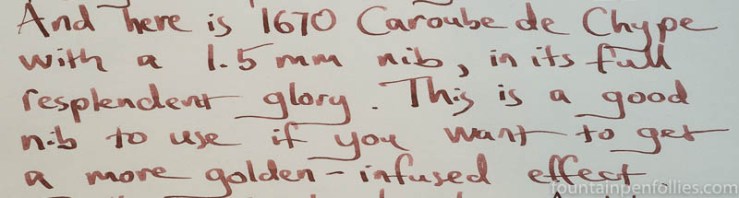 And here is 1670 Caroube de Chype
with a 1.5 mm nib, in its full
resplendent glory. This is a good
nib to use if you want to get
a more golden-infused effect.
fountainpenfollies.com